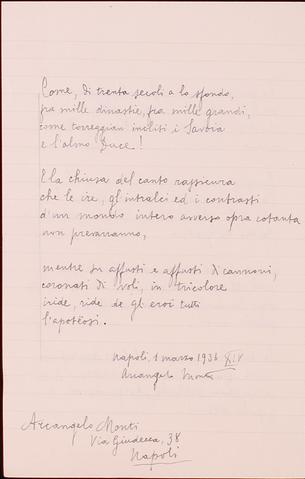 Come, di trenta secoli a lo sfondo,
fra mille dinastie, fra mille grandi,
come torreggian incliti i Savoia
e l'almo Duce!
E la chiusa del canto rassicura
che le ire, gl'intralci ed i contrasti
d'un mondo intero avverso opra cotanta
non prevarranno,
mentre su affusti e affusti di cannoni,
coronati di voli, in tricolore
iride, ride de gl'eroi tutti
l'apotëosi.
Napoli, 1 marzo 1936 XIV
Arcangelo Monti
Arcangelo Monti
Via Giudecca, 38
Napoli